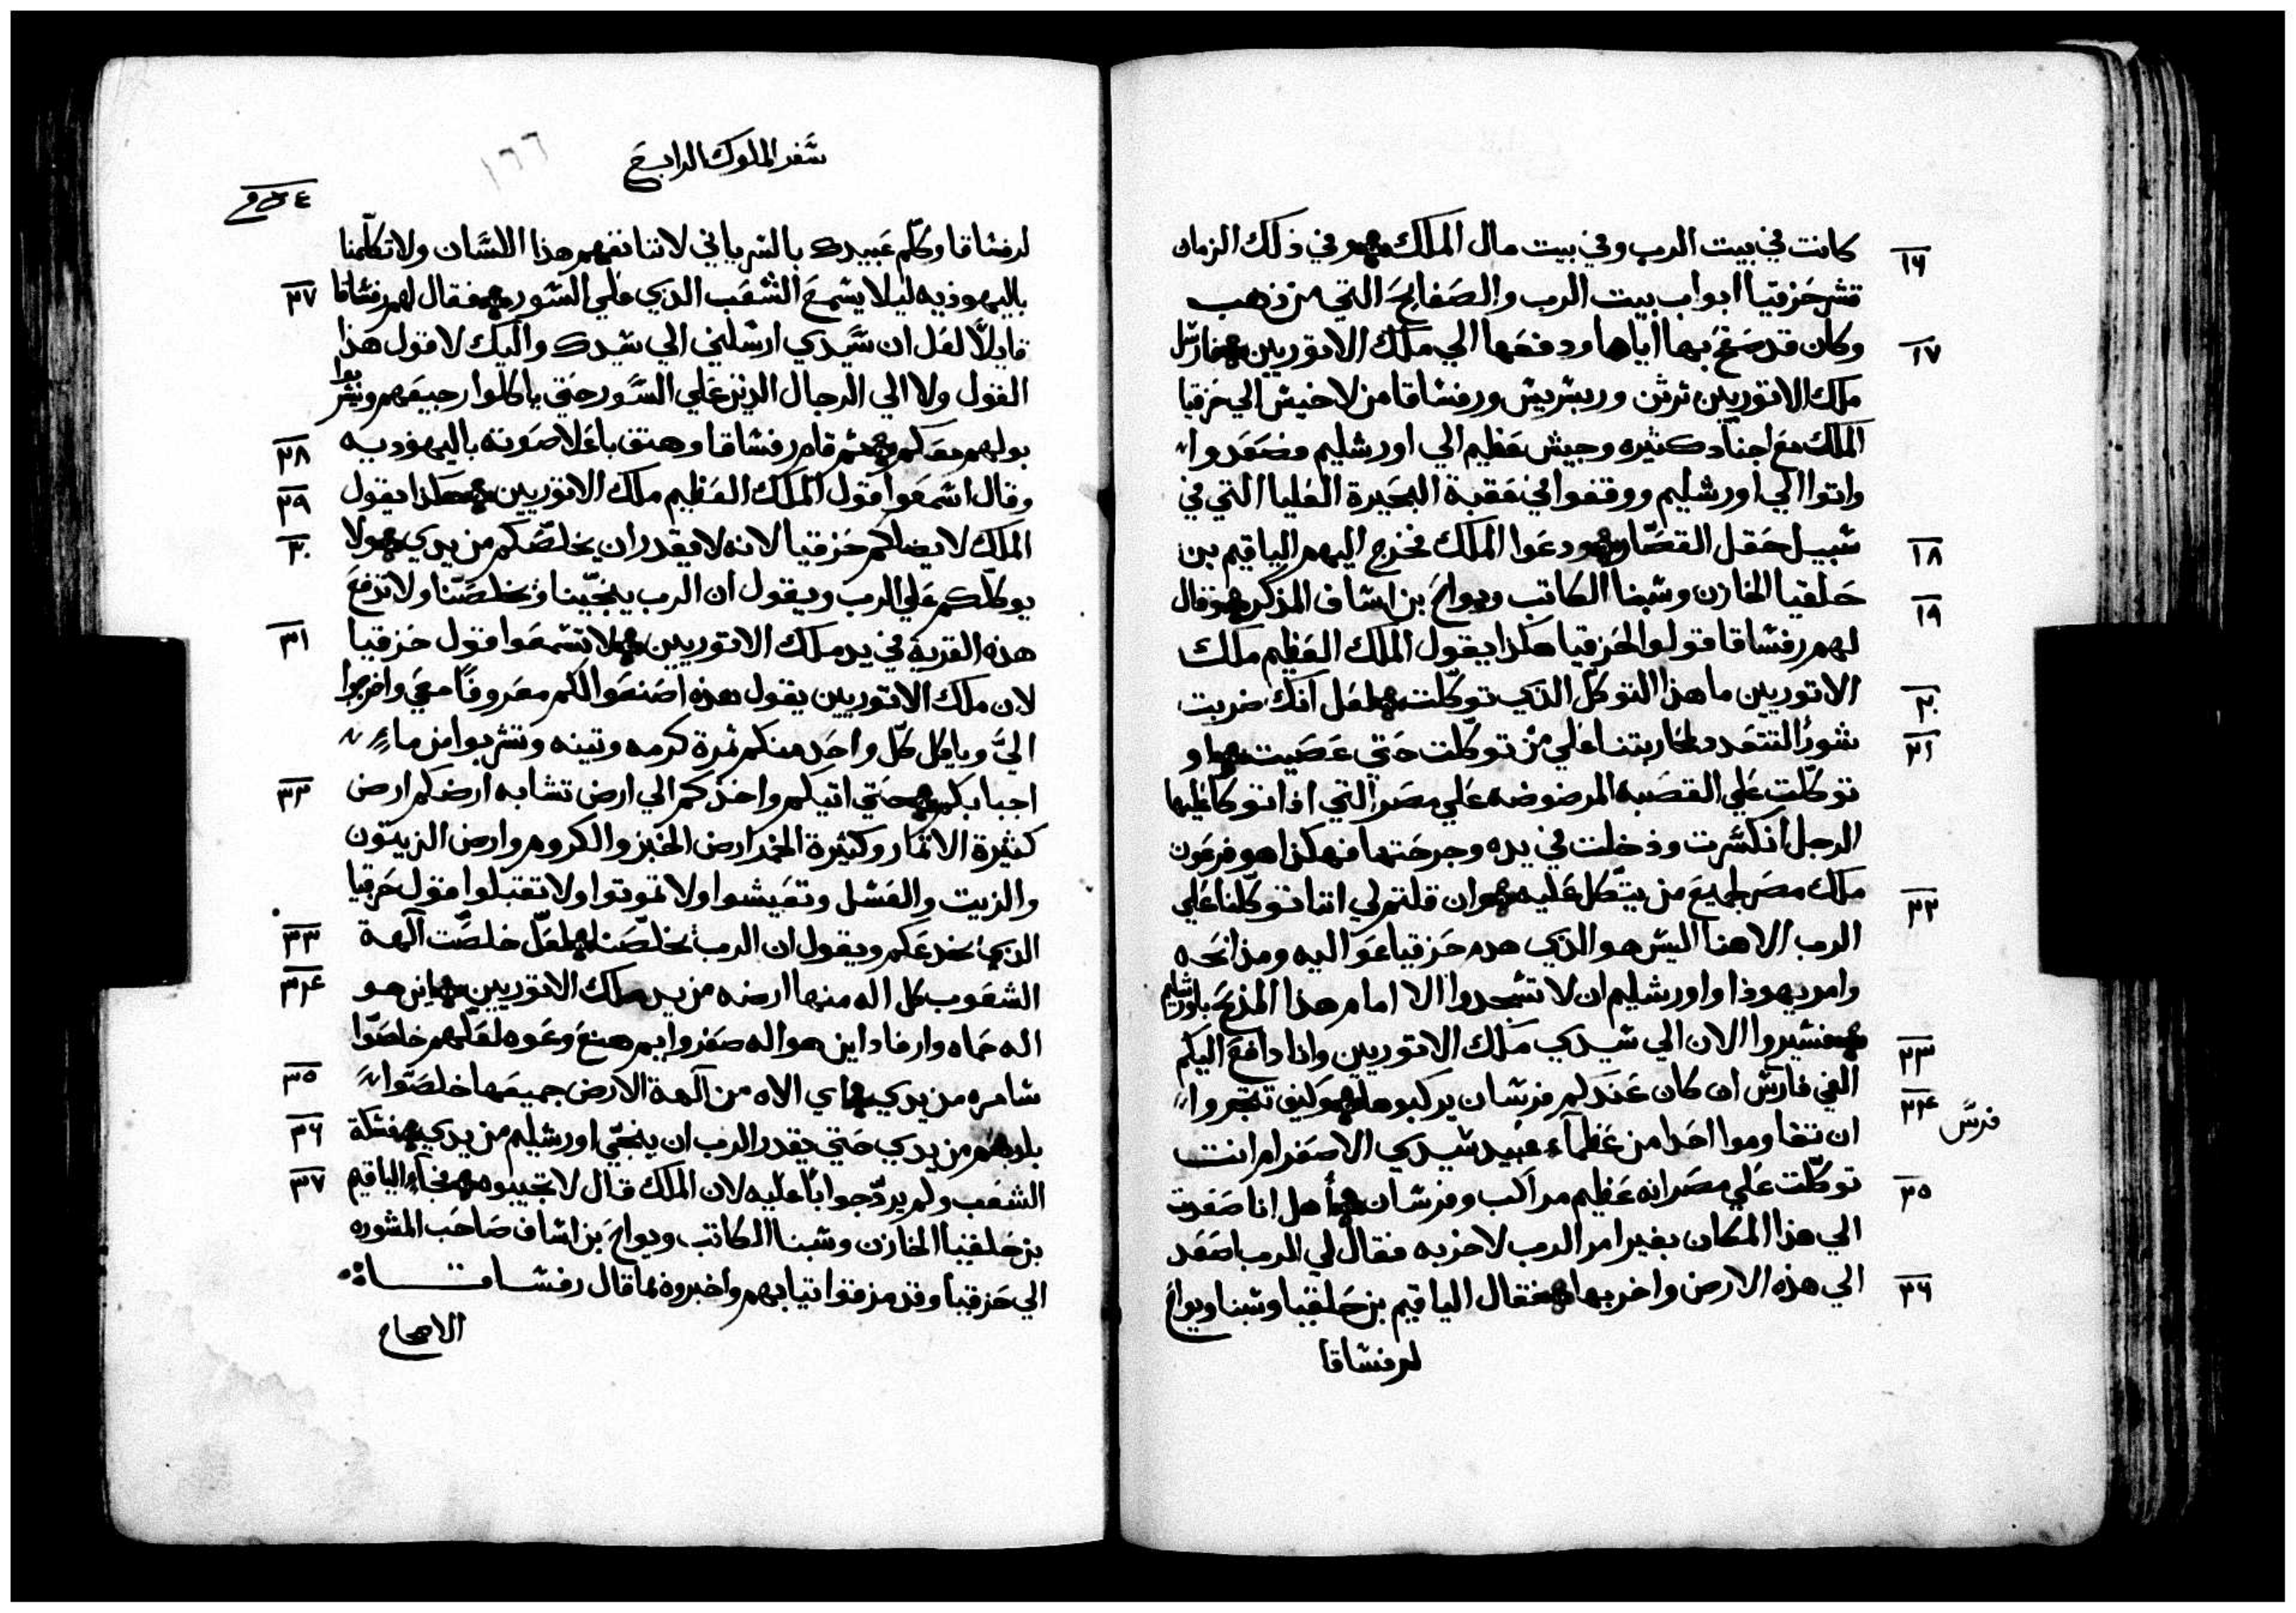 كانت في بيت الرب وفي بيت مال الملك وفي ذلك الزمان
١٦
قشر حزقيا ابواب بيت الرب والصفايح التي من ذهب
وكان قد صفح بها اياها ودفعها الي ملك الاتوريين فارسل
١٧
ملك الاتوريين ترتن وربسريس ورفشاقا من لاخيش الي حزقيا
الملك مع اجناد كثيره وجيش عظيم الي اورشليم فصعدوا
واتوا الي اورشليم ووقفوا في عقبة البحيرة العليا التي في
سبيل حقل القصار ودعوا الملك فخرج اليهم الياقيم بن
١٨
حلقيا الخازن وشبنا الكاتب ويواح بن اساف المذكر فقال
١٩
لهم رفشاقا قولوا لحزقيا هكذا يقول الملك العظيم ملك
الاتوريين ما هذا التوكل الذي توكلت لعل انك ضربت
٢٠
شورًا لتتعد لمحاربتنا علي من توكلت حتي عصيت او
٢١
توكلت علي القصبه المرضوضه علي مصر التي اذا توكا عليها
الرجل انكسرت ودخلت في يده وجرحتها فهكذا هو فرعون
ملك مصر لجميع من يتكل عليه وان قلتم لي اننا توكلنا علي
٢٢
الرب الاهنا اليس هو الذي هدم حزقيا عواليه ومذابحه
وامر يهوذا واورشليم ان لا تسجدوا الا امام هذا المذبح باورشليم
فسيروا الان الي سيدي ملك الاتوريين وانا دافع اليكم
٢٣
الفي فارس ان كان عندكم فرسان يركبوها وكيف تقدروا
٢٤
فرس
ان تقاوموا احدا من عظماء عبيد سيدي الاصغر ام انت
توكلت علي مصر انه عظيم مراكب وفرسان هل انا صعدت
٢٥
الي هذا المكان بغير امر الرب لاخربه فقال لي الرب اصعد
الي هذه الارض واخربها فقال الياقيم بن حلقيا وشبنا ويواح
٢٦
لرفشاقا
سفر الملوك الرابع
١٦٦
لرفشاقا وكلم عبيدك بالسرياني لاننا نفهم هذا اللسان ولا تكلمنا
باليهوذيه ليلا يسمع الشعب الذي علي السور فقال لهم رفشاقا
٢٧
قايلًا لعل ان سيدي ارسلني الي سيدك واليك لاقول هذا
القول ولا الي الرجال الذين علي السور حتي ياكلوا رجيعهم ويشربوا
بولهم معكم ثم قام رفشاقا وهتف باعلا صوته باليهوديه
٢٨
وقال اسمعوا قول الملك العظيم ملك الاتوريين هكذا يقول
٢٩
الملك لا يضلكم حزقيا لانه لا يقدر ان يخلصكم من يدي ولا
٣٠
يوكلكم علي الرب ويقول ان الرب ينجينا ويخلصنا ولا تدفع
هذه القرية في يد ملك الاتوريين لا تسمعوا قول حزقيا
٣١
لان ملك الاتوريين يقول هذه اصنعوا لكم معروفًا معي واخرجوا
اليّ وياكل كل واحد منكم ثمرة كرمه وتينه وتشربوا من ماء
اجبابكم حتي اتيكم واخذكم الي ارض تشابه ارضكم ارض
٣٢
كثيرة الاثمار وكثيرة الخمر ارض الخبز والكروم وارض الزيتون
والزيت والعسل وتعيشوا ولا تموتوا ولا تقبلوا قول حزقيا
الذي يخدعكم ويقول ان الرب يخلصنا لعل خلصت آلهة
٣٣
الشعوب كل اله منها ارضه من يد ملك الاتوريين اين هو
٣٤
اله حماه وارفاد اين هو اله صفروايم هنع وعوه لعلهم خلصوا
سامره من يدي اي الاه من آلهة الارض جميعها خلصوا
٣٥
بلدهم من يدي حتي يقدر الرب ان ينجي اورشليم من يدي فسكت
٣٦
الشعب ولم يرد جوابًا عليه لان الملك قال لا تجيبوه فجاء الياقيم
٣٧
بن حلقيا الخازن وشبنا الكاتب ويواح بن اساف صاحب المشوره
الي حزقيا وقد مزقوا ثيابهم واخبروه بما قال رفشاقاه
الاصحاح